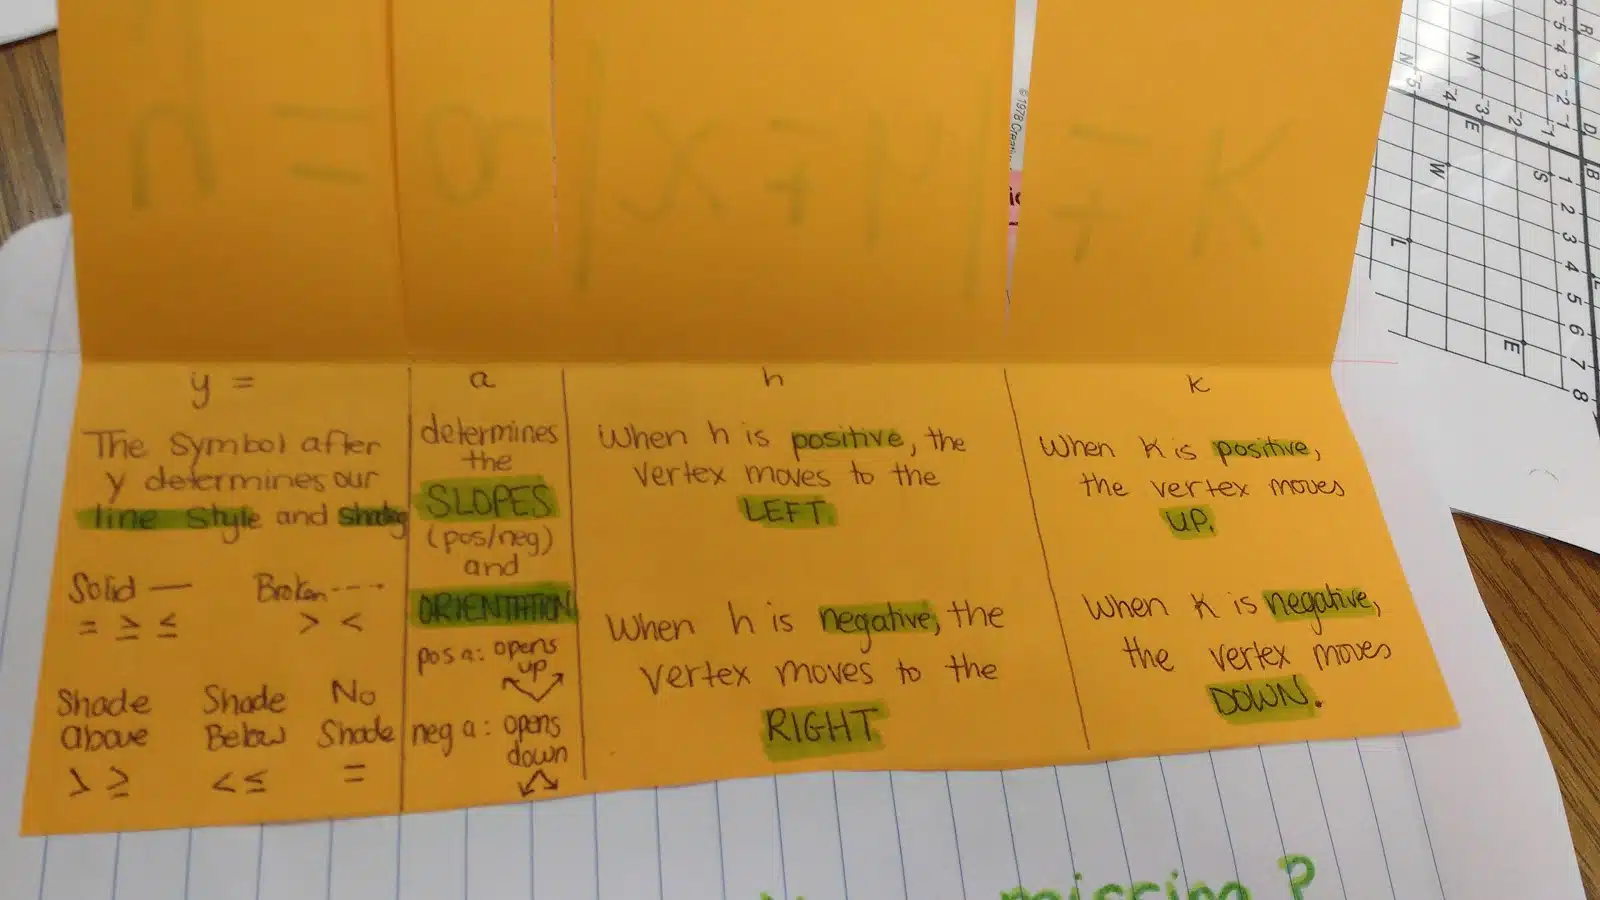 y = a | x ∓ h | ∓ K
© 1978 Creati
y =
The Symbol after
y determines our
line Style and shading
Solid —
= ≥ ≤
Broken ----
> <
Shade
above
> ≥
Shade
Below
< ≤
No
Shade
=
a
determines
the
SLOPES
(pos/neg)
and
ORIENTATION
pos a: opens
up
neg a: opens
down
h
When h is positive, the
vertex moves to the
LEFT.
When h is negative, the
vertex moves to the
RIGHT
k
When K is positive,
the vertex moves
UP.
When K is negative,
the vertex moves
DOWN.
missing?
R
N
N
D
E
B
S
W
L
E
-5 -4 -3 -2 -1
1 2 3 4 5 6 7 8